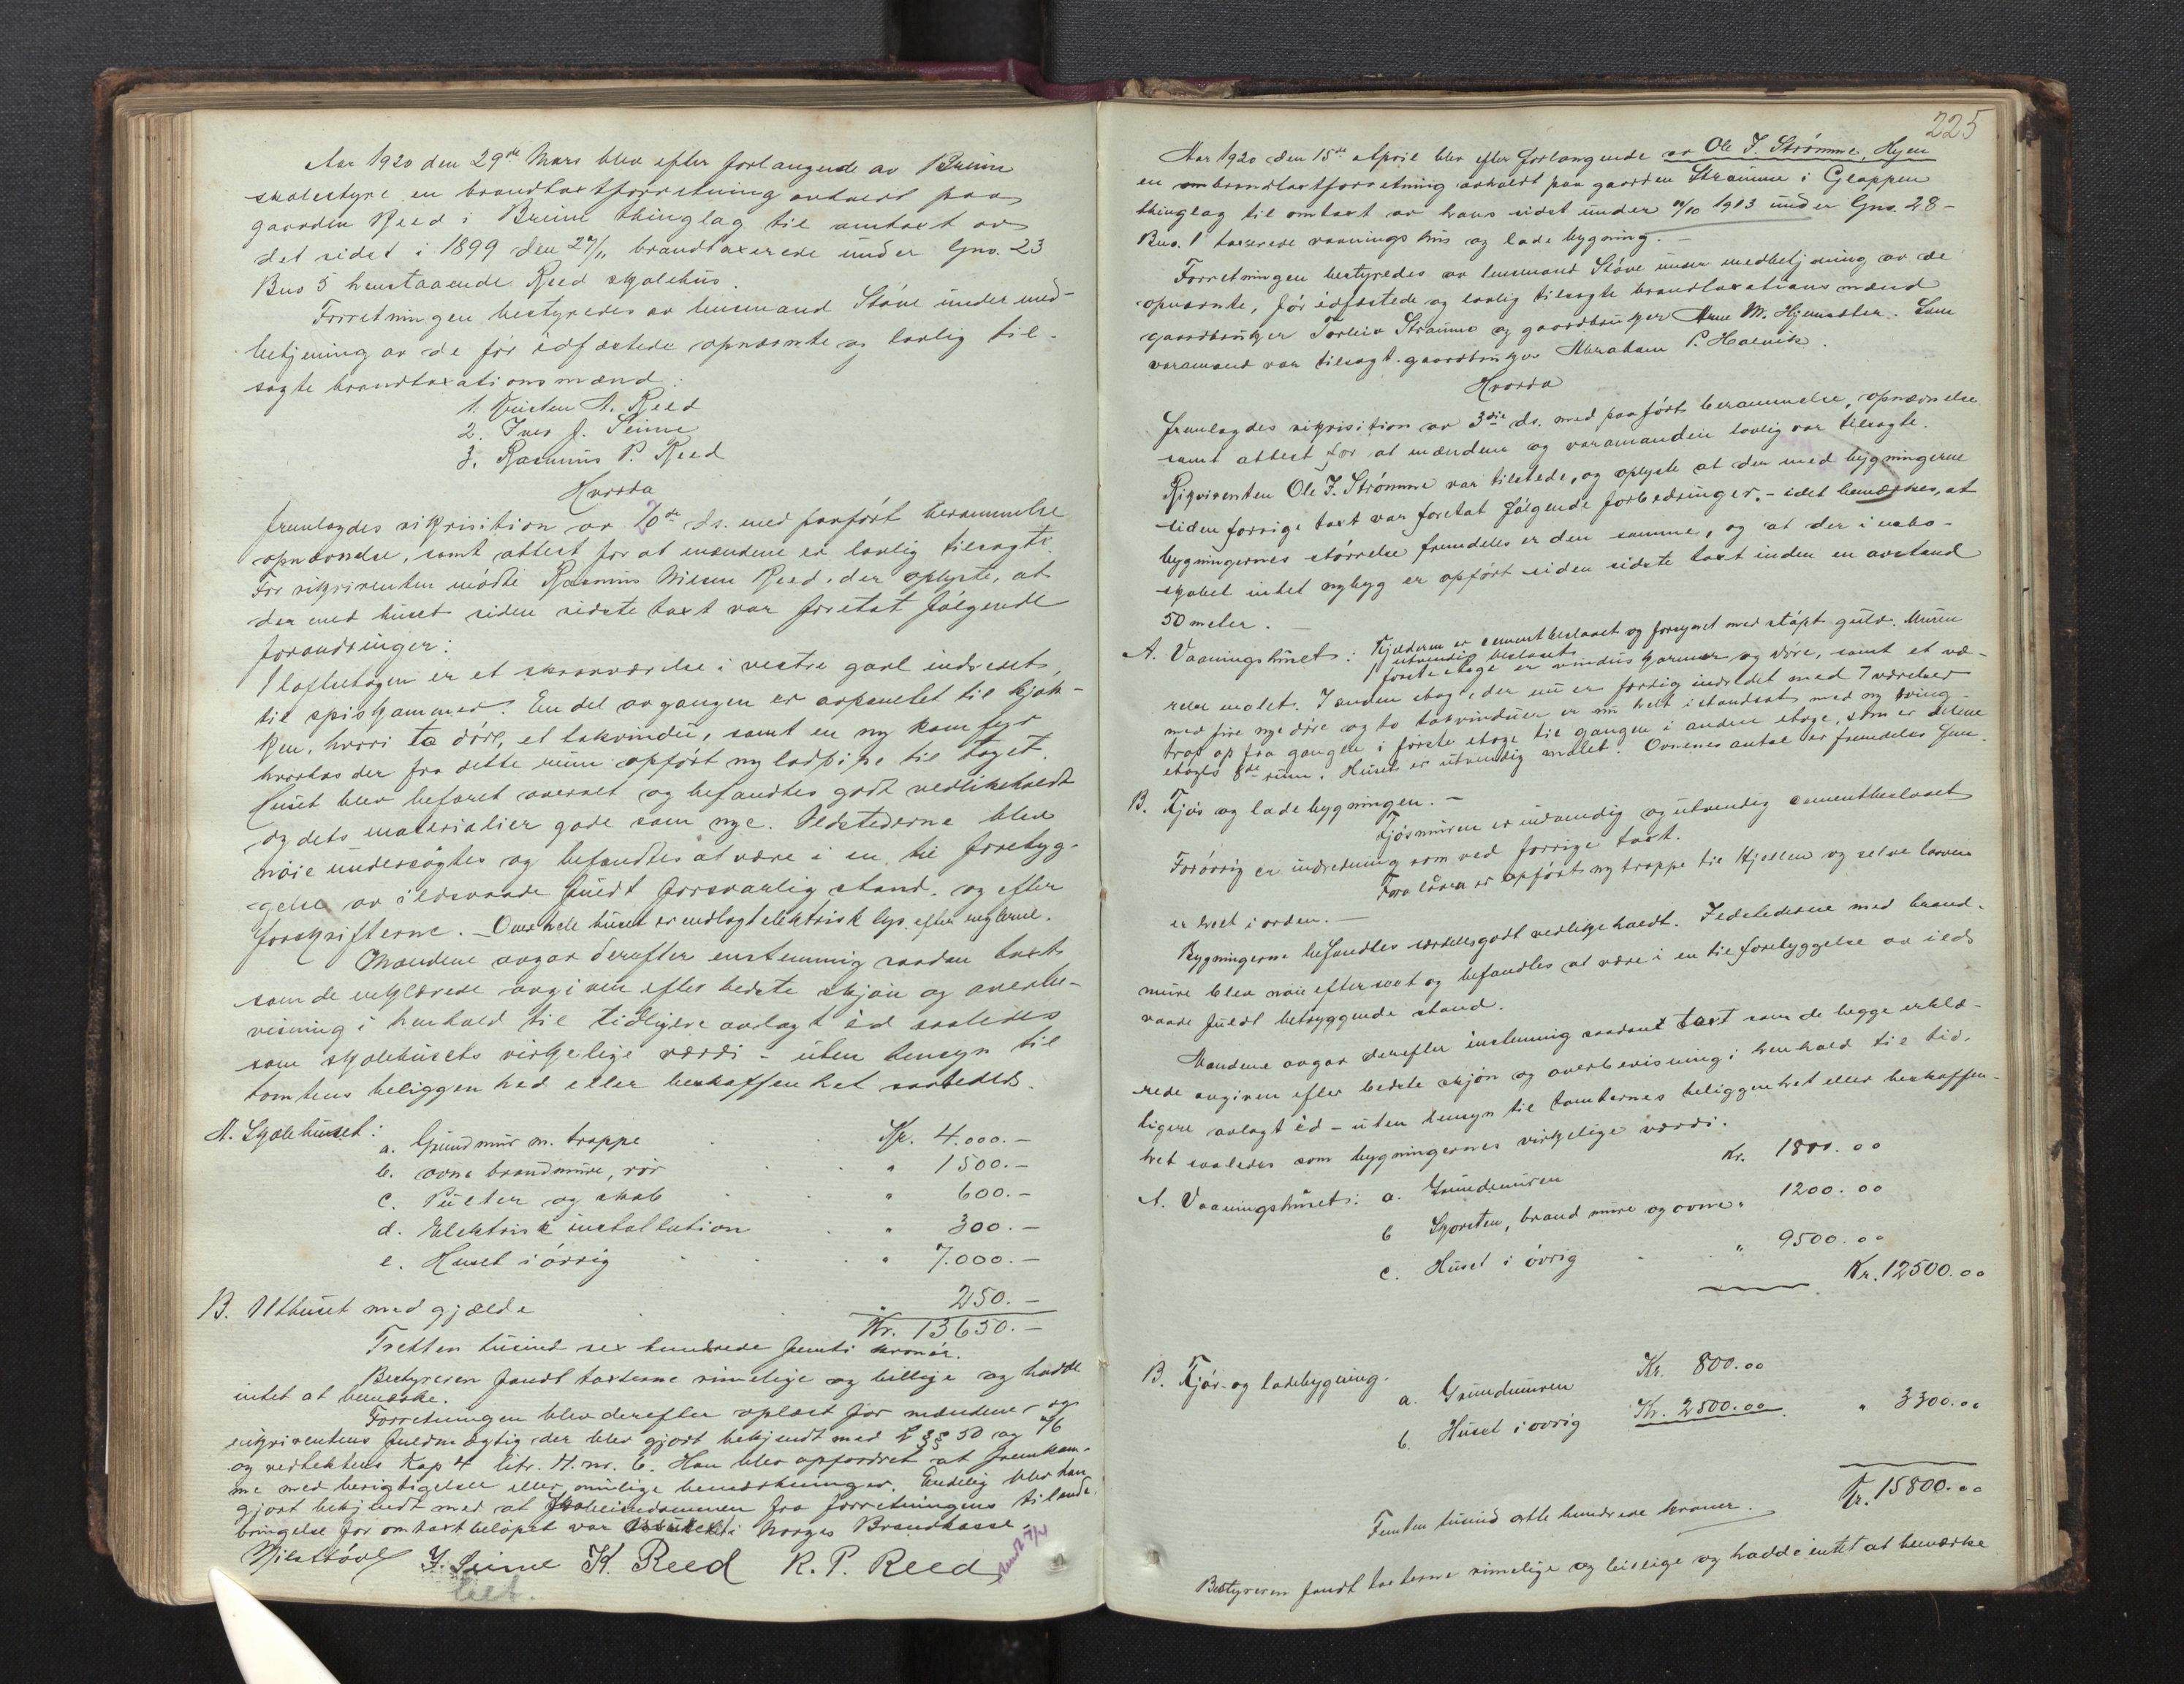 Aar 1920 den 29de Mars blev efter forlangende av Breim
skolestyre en brandtaxtforretning avholdt paa
gaarden Reed i Breim thinglag til omtaxt av
det sidst i 1899 den 27/11 brandtaxerede under Gno. 23
Bno 5 henstaaende Reed skolehus.
Forretningen bestyredes av lensmand Støve under med-
betjening av de før edfæstede opnævnte og lovlig til-
sagte brandtaxationsmænd:
1. Kristen A. Reed
2. Iver J. Seime
3. Rasmus P. Reed
Hvorda
fremlagdes rekvisition av 26de ds. med paaført berammelse
opnævnelse, samt attest for at mændene er lovlig tilsagte.
For rekvirenten mødte Rasmus Nilsen Reed, der oplyste, at
der med huset siden sidste taxt var foretat følgende
forandringer:
I loftsetagen er et skraaværelse i vestre gavl indredet
til spiskammer. En del av gangen er avpanelet til kjøk-
ken, hvori to døre, et takvindu, samt en ny komfyr
hvorhos der fra dette rum opført ny lodpipe til taget.
Huset blev befaret overalt og befandtes godt vedlikeholdt
og dets materialier gode som nye. Ildstederne blev
nøie undersøgtes og befandtes at være i en til forebyg-
gelse av ildsvaade fuldt forsvarlig stand, og efter
forskrifterne. – Over hele huset er indlagt elektrisk lys efter reglerne.
Mændene avgav derefter enstemmig saadan taxt
som de erklærede avgiven efter bedste skjøn og overbe-
visning i henhold til tidligere avlagt ed saaledes
som skolehusets virkelige værdi – uten hensyn til
tomtens beliggenhed eller beskaffenhet saaledes.
A. Skolehuset:
a. Grundmur m. trappe Kr. 4.000.–
b. ovne brandmure, rør " 1500.–
c. Pulter og skab " 600.–
d. Elektrisk installation " 300.–
e. Huset i øvrig " 7.000.–
B. Uthuset med gjælde " 250.–
Kr. 13650.–
Tretten tusind sex hundrede femti kroner.
Bestyreren fandt taxterne rimelige og billige og hadde
intet at bemerke.
Forretningen blev derefter oplæst for mændene, og
rekvirentens fuldmægtig der blev gjort bekjendt med L §§ 50 og 76
og vedtektens Kap 4 litr. H. nr. 6. Han blev opfordret at fremkom-
me med berigtigelser eller mulige bemerkninger. Endelig blev han
gjort bekjendt med at forretningens tilende-
bringelse for omtaxtbeløpet var i Norges Brandkasse.
Nils Støve J. Seime K. Reed R. P. Reed
225
Aar 1920 den 15de April blev efter forlangende av Ole J. Strømme, Hyen
en brandtaxtforretning avholdt paa gaarden Straume i Gloppen
thinglag til omtaxt av hans sidst under 14/10 1913 under Gno. 28 –
Bno. 1 taxerede vaanings hus og lade bygning. –
Forretningen bestyredes av lensmand Støve under medbetjening av de
opnævnte, før edfæstede og lovlig tilsagte brandtaxationsmænd
gaardbruker Torleiv Straume og gaardbruker Arne M. Hjemseter. Som
varamand var tilsagt gaardbruker Abraham P. Holvik.
Hvorda
fremlagdes rekvisition av 3die ds. med paaført berammelse, opnævnelse
samt attest for at mændene og varamanden lovlig var tilsagte.
Rekvirenten Ole J. Strømme var tilstede, og oplyste at der med bygningerne
siden forrige taxt var foretat følgende forbedringer, – idet bemærkes, at
bygningernes størrelse fremdeles er den samme, og at der i nabo-
skabet intet nybyg er opført siden sidste taxt inden en avstand
50 meter. –
A. Vaaningshuset: Kjelderen er cementbeslaaet og forsynet med støpt gulv. Muren
utvendig beslaaet
I første etage er vinduskarmer og døre, samt et væ-
relse malet. I anden etage, der nu er færdig indredet med 7 værelser
med fire nye døre og to takvinduer er nu helt istandsat med ny sving-
trap op fra gangen i første etage til gangen i anden etage, som er denne
etages 8de rum. Huset er utvendig malet. Ovnenes antal er fremdeles fem.
B. Fjøs og lade bygningen. –
Fjøsmuren er indvendig og utvendig cementbeslaaet
Forøvrig er indredning som ved forrige taxt.
Fra låven er opført ny trappe til Hjellen og selve låven
er helt i orden. –
Bygningerne befandtes særdeles godt vedlikeholdt. Ildstederne med brand-
mure blev nøie efterseet og befandtes at være i en til forebyggelse av ilds
vaade fuldt betryggende stand.
Mændene avgav derefter enstemmig saadant taxt som de begge erklæ-
rede avgiven efter bedste skjøn og overbevisning i henhold til tid-
ligere avlagt ed – uten hensyn til tomternes beliggenhet eller beskaffen-
het saaledes som bygningernes virkelige værdi.
A. Vaaningshuset: a. Grundmuren Kr. 1800.00
b Skorsten, brand mure og ovne " 1200.00
c. Huset i øvrig " 9500.00
Kr. 12500.00
B. Fjøs- og ladebygning.
a. Grundmuren Kr. 800.00
b. Huset i øvrig Kr. 2500.00 " 3300.00
Kr. 15800.00
Femten tusind otte hundrede kroner.
Bestyreren fandt taxterne rimelige og billige og hadde intet at bemærke